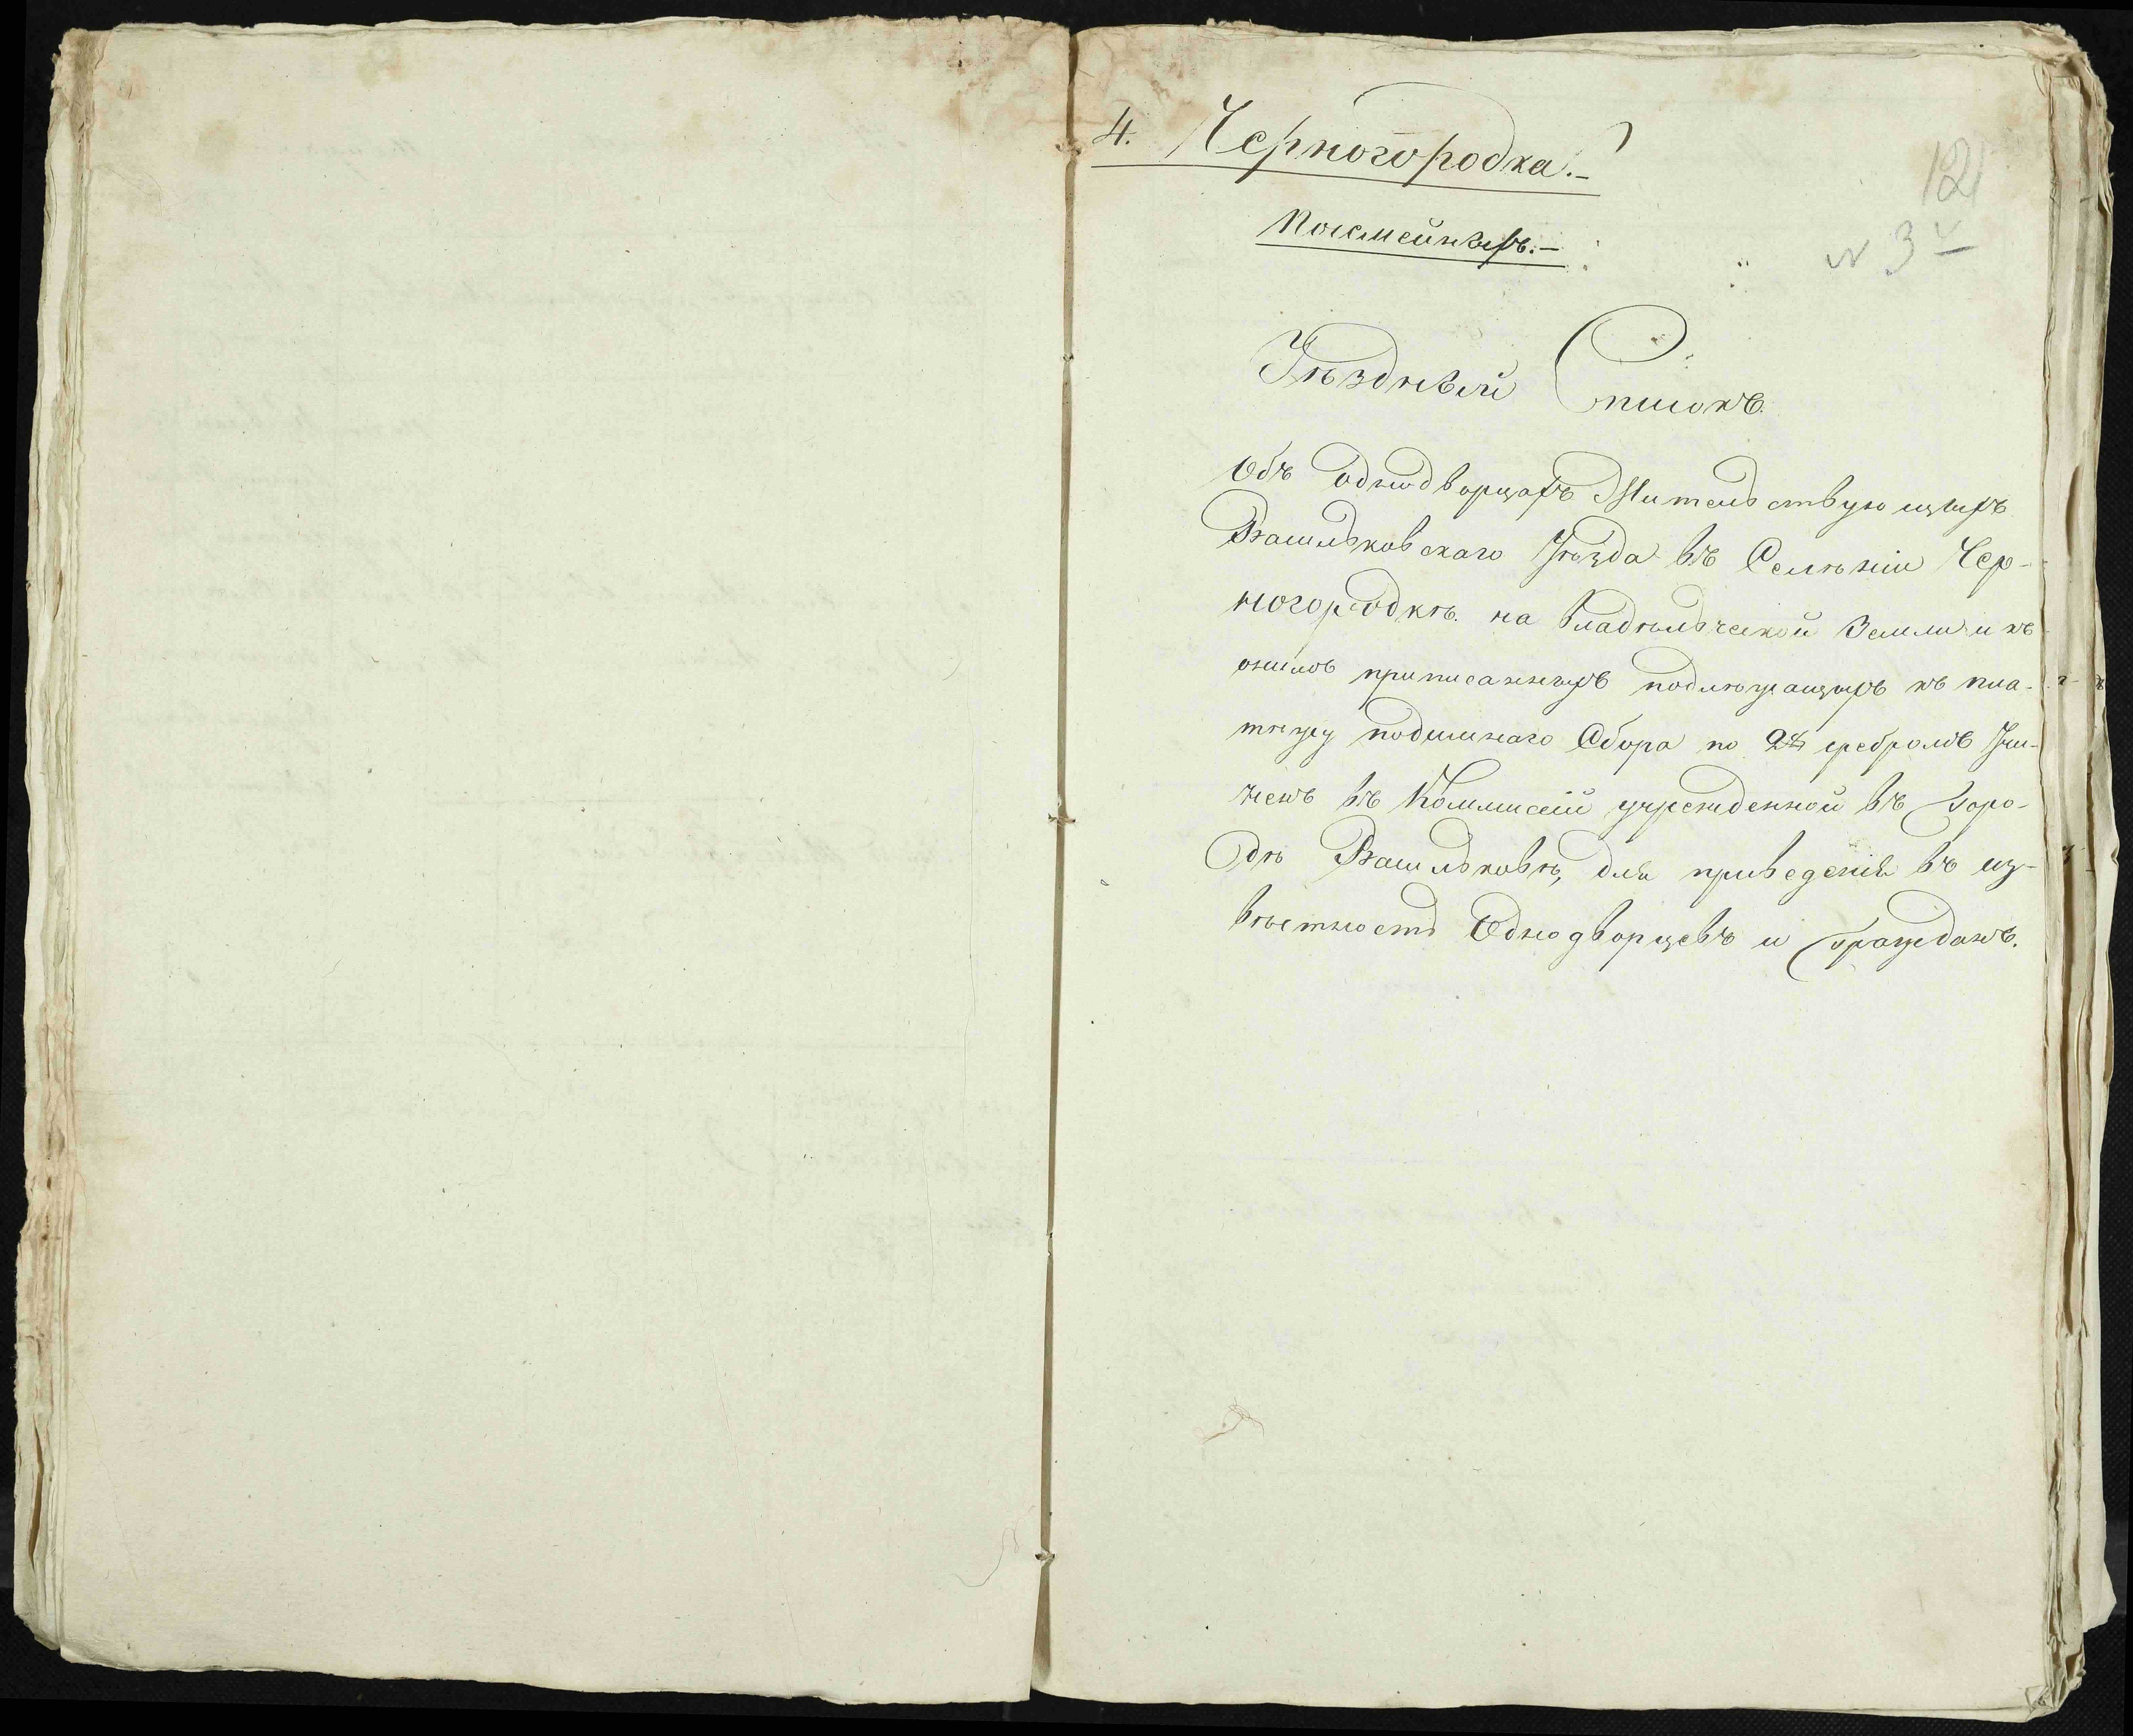 4. Черногородка.-
121
Посемейныхъ.-
N 3
Уѣздный Списокъ
Объ однодворцахъ Жительствующихъ
Васильковскаго Уѣзда въ Селѣніи Чер-
ногородкѣ. на владѣльческой Земли и къ
онымъ приписанныхъ подлежащихъ къ пла-
тежу подымнаго Сбора по серебромъ Учи-
ненъ въ Коммисіи учрежденной въ Горо-
дѣ Васильковѣ, для приведенія въ из-
вѣстность Однодворцевъ и Гражданъ.